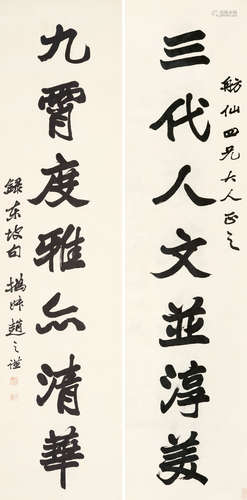 舫仙四兄大人正之
三代人文並淳美
九霄度雅亦清華
錄東坡句 撝叔趙之謙